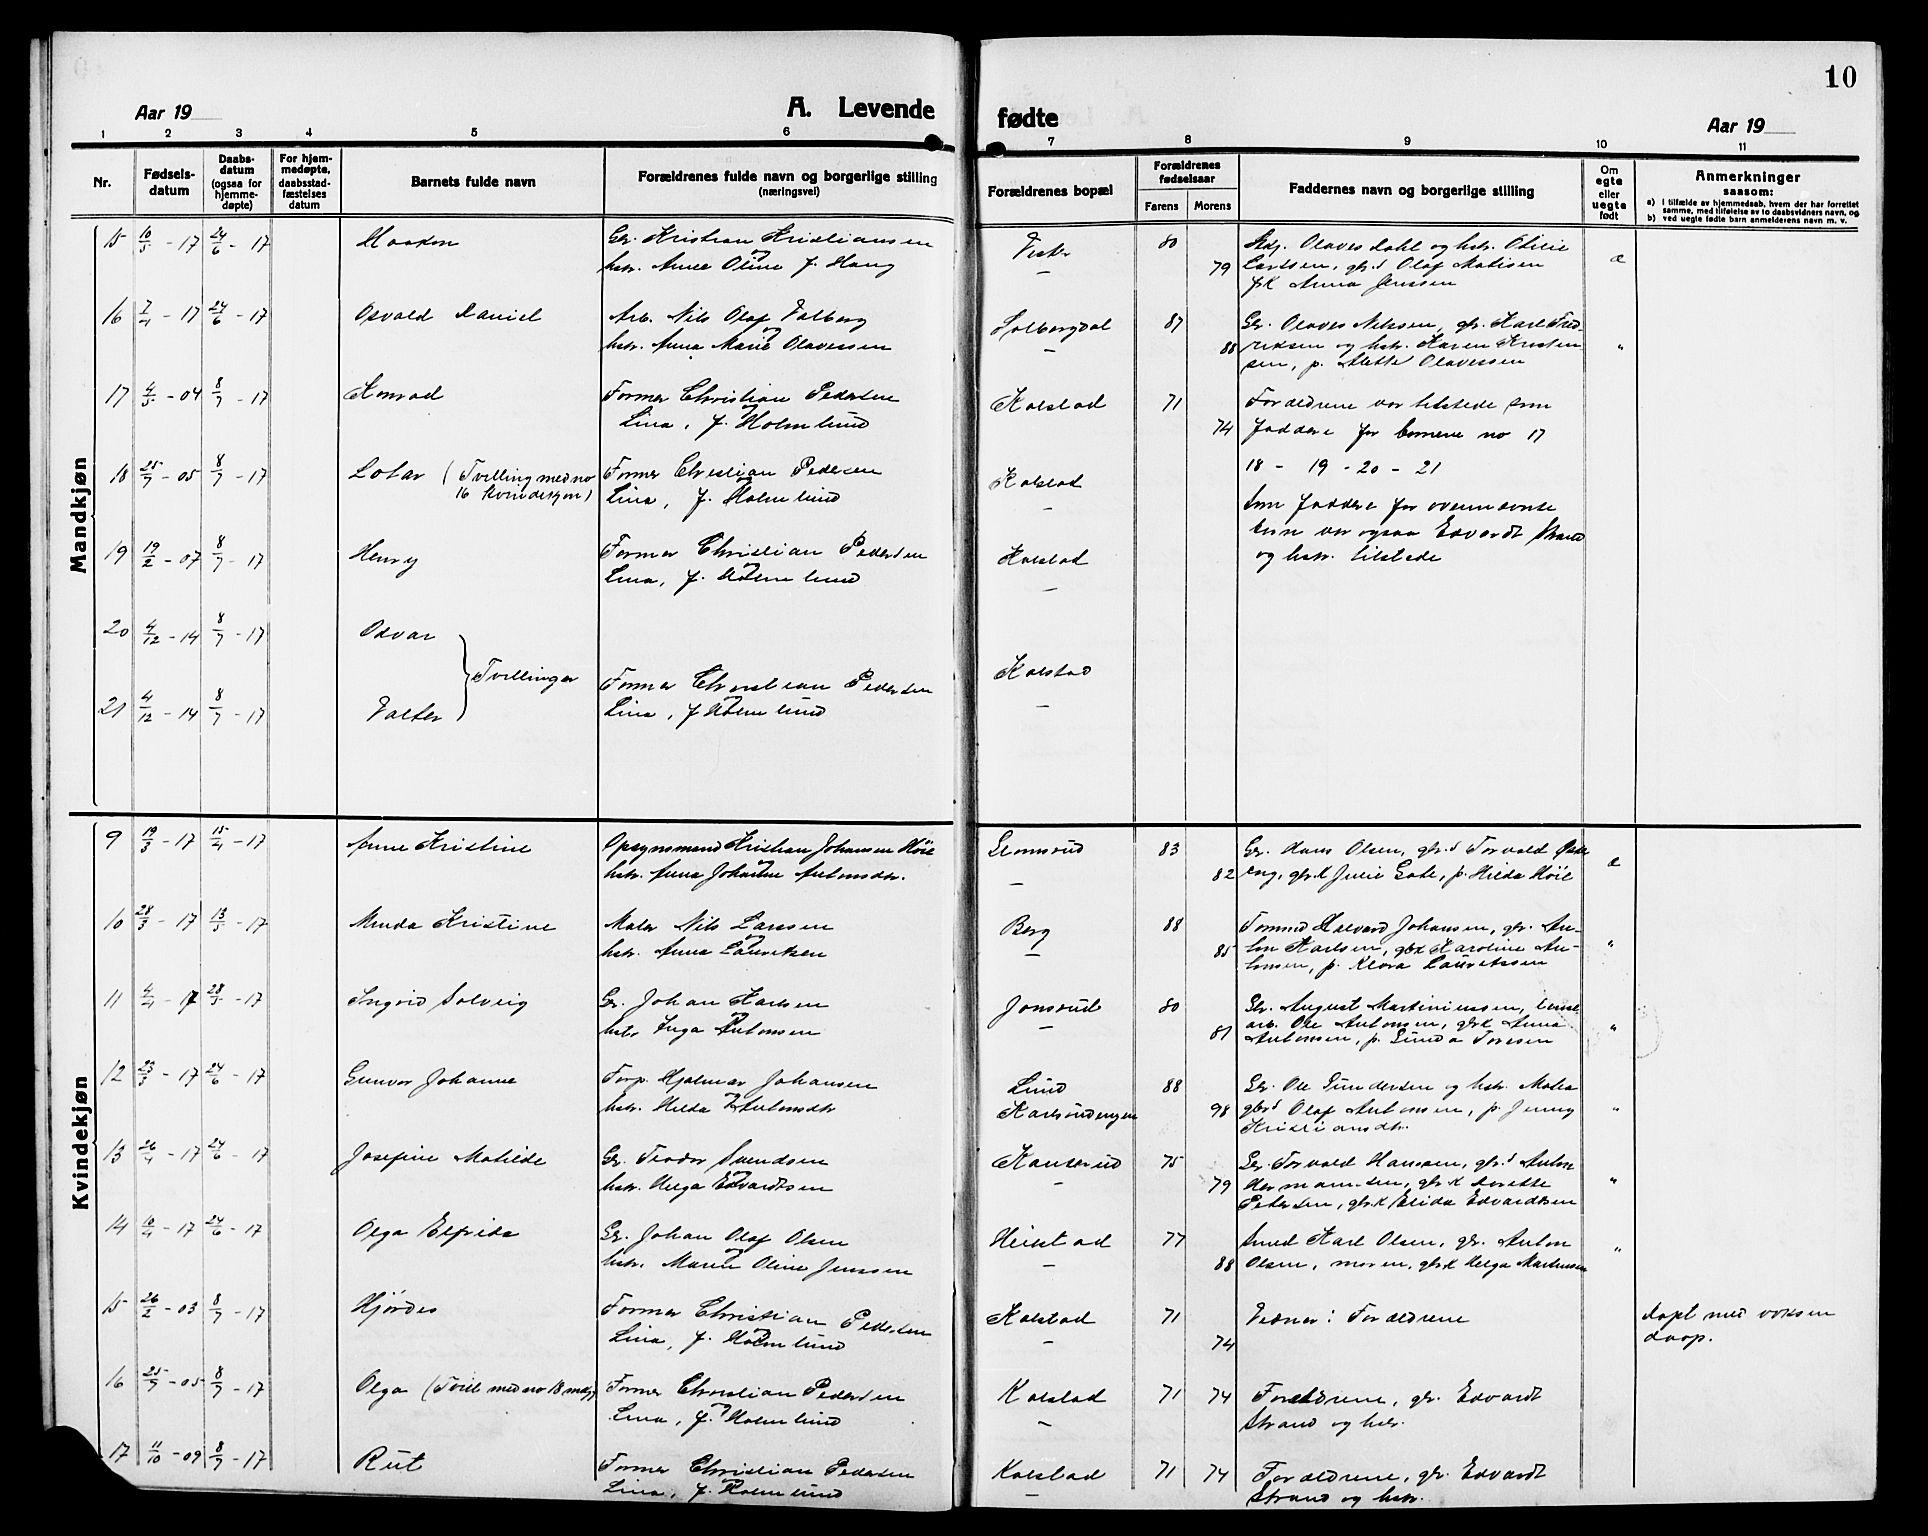 10
Aar 19
A. Levende
fødte
Aar 19
1 2 3 4 5 6 7 8 9 10 11
Nr.
Fødsels-
datum
Daabs-
datum
(ogsaa for
hjemme-
døpte)
For hjem-
medøpte,
daabsstad-
fæstelses
datum
Barnets fulde navn
Forældrenes fulde navn og borgerlige stilling
(næringsvei)
Forældrenes bopæl
Forældrenes
fødselsaar
Farens Morens
Faddernes navn og borgerlige stilling
Om
egte
eller
uegte
født
Anmerkninger
saasom:
a) I tilfælde av hjemmedaab, hvem der har forrettet
samme, med tilføielse av to daabsvidners navn, og
b) ved uegte fødte barn anmelderens navn m. v.
Mandkjøn
15 10/5 - 17 24/6 - 17 Haakon Gr. Kristian Kristiansen 80
og
hstr. Anne Oline f. Haug — 79 Larssen, gbr.s Olaf Matisen æ
Anna Jenssen
16 7/4 - 17 24/6 - 17 Osvald Daniel Arb. Nils Olaf Valberg Solbergdal 87 Gr. Olaves Nilssen, gbr. Karl Fred-
og
hstr. Anna Marie Olavessen — 88 riksen og hstr. Karen Kristen "
sen, p. Alette Olavessen
17 4/5 - 04 8/7 - 17 Konrad Former Christian Pedersen Kolstad 71 Forældrene var tilstede som
og
Lina, f. Holmlund 74 faddere for børnene no 17
18 25/7 - 05 8/7 - 17 Lotar (Tvilling med no Former Christian Pedersen Kolstad 18 - 19 - 20 - 21
16 kvindekjøn) Lina, f. Holmlund — Som faddere for ovennævnte
19 19/2 - 07 8/7 - 17 Henry Former Christian Pedersen Kolstad børn var ogsaa Edvardt Strand
Lina, f. Holmlund — og hstr. tilstede
20 4/12 - 14 8/7 - 17 Odvar
Tvillinger Former Christian Pedersen Kolstad
21 4/12 - 14 8/7 - 17 Valter Lina, f Holmlund —
Kvindekjøn
9 19/3 - 17 15/4 - 17 Anne Kristine Opsynsmand Kristian Johansen Höie 83 Gr. Hans Olsen, gbr.s Torvald
hstr. Anna Johanne Antonsdtr. — 82 eng, gbr.k Julie Gate, p. Hilda Höie æ
10 28/3 - 17 13/5 - 17 Minda Kristine Maler Nils Larssen Berg 88 Halvard Johansen, gbr. An-
hstr. Anna Lauritsen — 85 ton Karlsen, gbk Karoline An- "
tonsen, p. Klara Lauritssen
11 4/4 - 17 28/5 - 17 Ingrid Solveig Gr. Johan Karlsen Jonsrud 80 Gbr. August Martiniussen,
og
hstr Inga Antonsen — 81 arb. Ole Antonsen, gbk Anna "
Antonsen, p. Lunda Toresen
12 23/3 - 17 24/6 - 17 Gunvor Johanne Torp. Hjalmar Johansen Lund 88 Gr. Ole Gundersen og hstr. Matea
og
hstr. Hilda Antonsdtr 98 gbr.s Olaf Antonsen, p. Jenny "
Kristiansdtr.
13 26/4 - 17 24/6 - 17 Josefine Matilde Gr. Teodor Svendsen Kanserud 75 Gr. Torvald Hanssen, gbr.s Anton
hstr. Helga Edvardtsen — 79 Hermansen, gbr.k Lorette "
Petersen, gbr.k Elida Edvardtsen
14 10/4 - 17 24/6 - 17 Olga Elfrida Gr. Johan Olaf Olsen Heiestad 77 Smed Karl Olsen, gr. Anton
og
hstr. Maren Oline Jenssen 88 Olsen, moren, gbr.k Helga Martinsen "
15 26/2 - 03 8/7 - 17 Hjördis Former Christian Pedersen Kolstad 71 Vidner: Forældrene døpt med voksen
Lina, f. Holmlund — 74 daap.
16 25/7 - 05 8/7 - 17 Olga (Tvill med no 18 mkj) Former Christian Pedersen Kolstad 71 74 Forældrene, gbr. Edvardt
Lina, f. Holmlund — Strand og hstr.
17 11/10 - 09 8/7 - 17 Rut Former Christian Pedersen Kolstad 71 74 Forældrene, gbr. Edvardt
Lina, f. Holmlund — Strand og hstr.